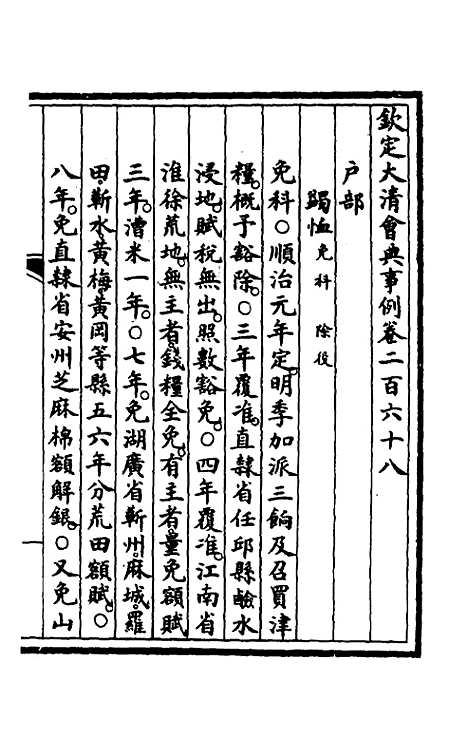 欽定大清會典事例卷二百六十八
戶部
蠲恤免科　除役
免科○順治元年定。明季加派三餉及召買津
糧。槪予豁除。○三年覆准。直隸省任邱縣鹼水
浸地。賦稅無出。照數豁免。○四年覆准。江南省
淮徐荒地。無主者。錢糧全免。有主者。量免額賦
三年。漕米一年。○七年。免湖廣省蘄州。麻城。羅
田。蘄水。黃梅。黃岡等縣五六年分荒田額賦。○
八年。免直隸省安州芝麻棉額解銀。○又免山